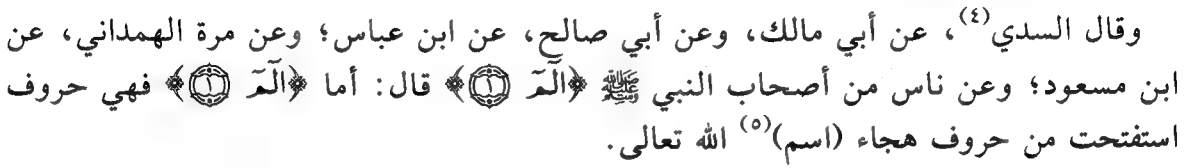 وقال السدي(٤)، عن أبي مالك، وعن أبي صالح، عن ابن عباس؛ وعن مرة الهمداني، عن
ابن مسعود؛ وعن ناس من أصحاب النبي ﷺ ﴿الٓمٓ ۝١﴾ قال: أما ﴿الٓمٓ ۝١﴾ فهي حروف
استفتحت من حروف هجاء (اسم)(٥) الله تعالى.